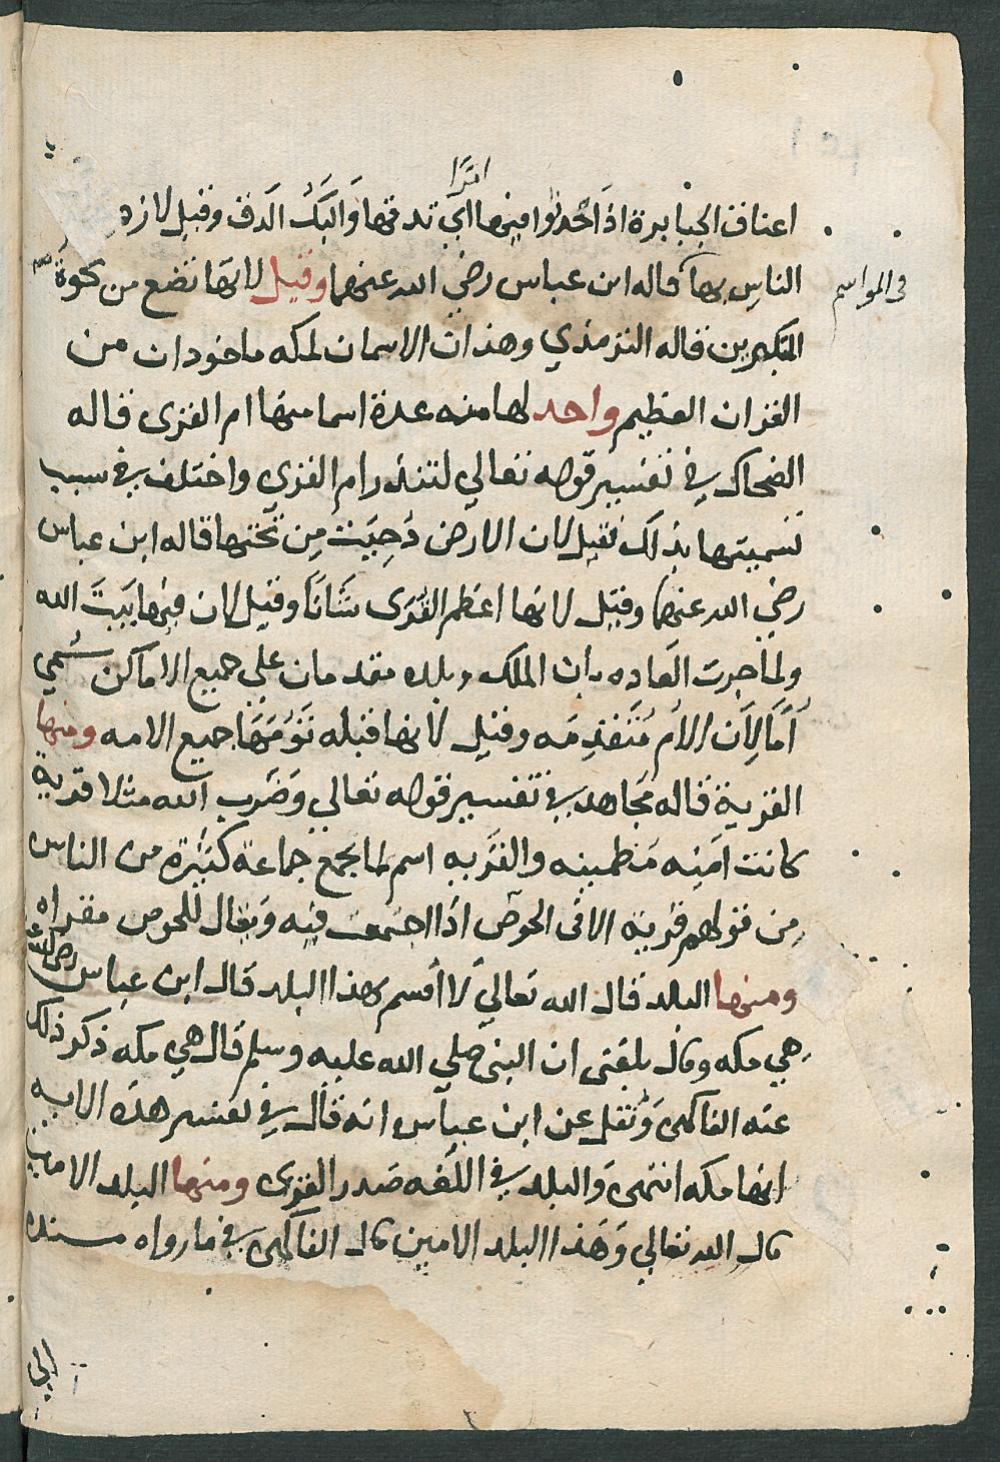 امرا
اعناق الجبابرة اذا احدثوا فيها اي تدقها والبك الدق وقيل لازد
في المواسم
الناس بها قاله ابن عباس رضي الله عنهما وقيل لانها تضع من نخوة
المتكبرين قاله الترمذي وهذان الاسمان لمكه ماخوذان من
القران العظيم واحد لها منه عدة اسما منها ام القرى قاله
الضحاك في تفسير قوله تعالي لتنذر ام القري واختلف في سبب
تسميتها بذلك فقيل لان الارض دُحِيَت مِن تحتها قاله ابن عباس
رضي الله عنهما وقيل لانها اعظم القُرَى شَانًا وقيل لان فيها بَيتَ الله
ولما جرت العاده بان الملك وبلده مقدمان علي جميع الاماكن سُمي
أُمًا لِأَن الأم مُتَقدِمَه وقيل لانها قبله تَؤُمّهَا جميع الامه ومنها
القرية قاله مجاهد في تفسير قوله تعالي وَضَرب الله مثلا قرية
كانت امَنِه مَطمينه والقَريه اسم لما يجمع جماعة كثيرة من الناس
من قولهم قريت الما في الحوض اذا اجتمعت فيه وَيقال للحوض مقراه
ومنها البلد قال الله تعالي لا أقسم بهذا البلد قال ابن عباس رضي الله عنه
هي مكه وقال بلغني ان النبي صلي الله عليه وسلم قال هي مكه ذكر ذلك
عنه الفاكهي وَنقل عن ابن عباس انه قال في تفسير هذه الايه
انها مكه انتهى وَالبلد في اللغه صَدر القرى ومنها البلد الامين
قال الله تعالي وَهَذا البلد الامين قال الفاكهي في ما رواه بسنده
الي